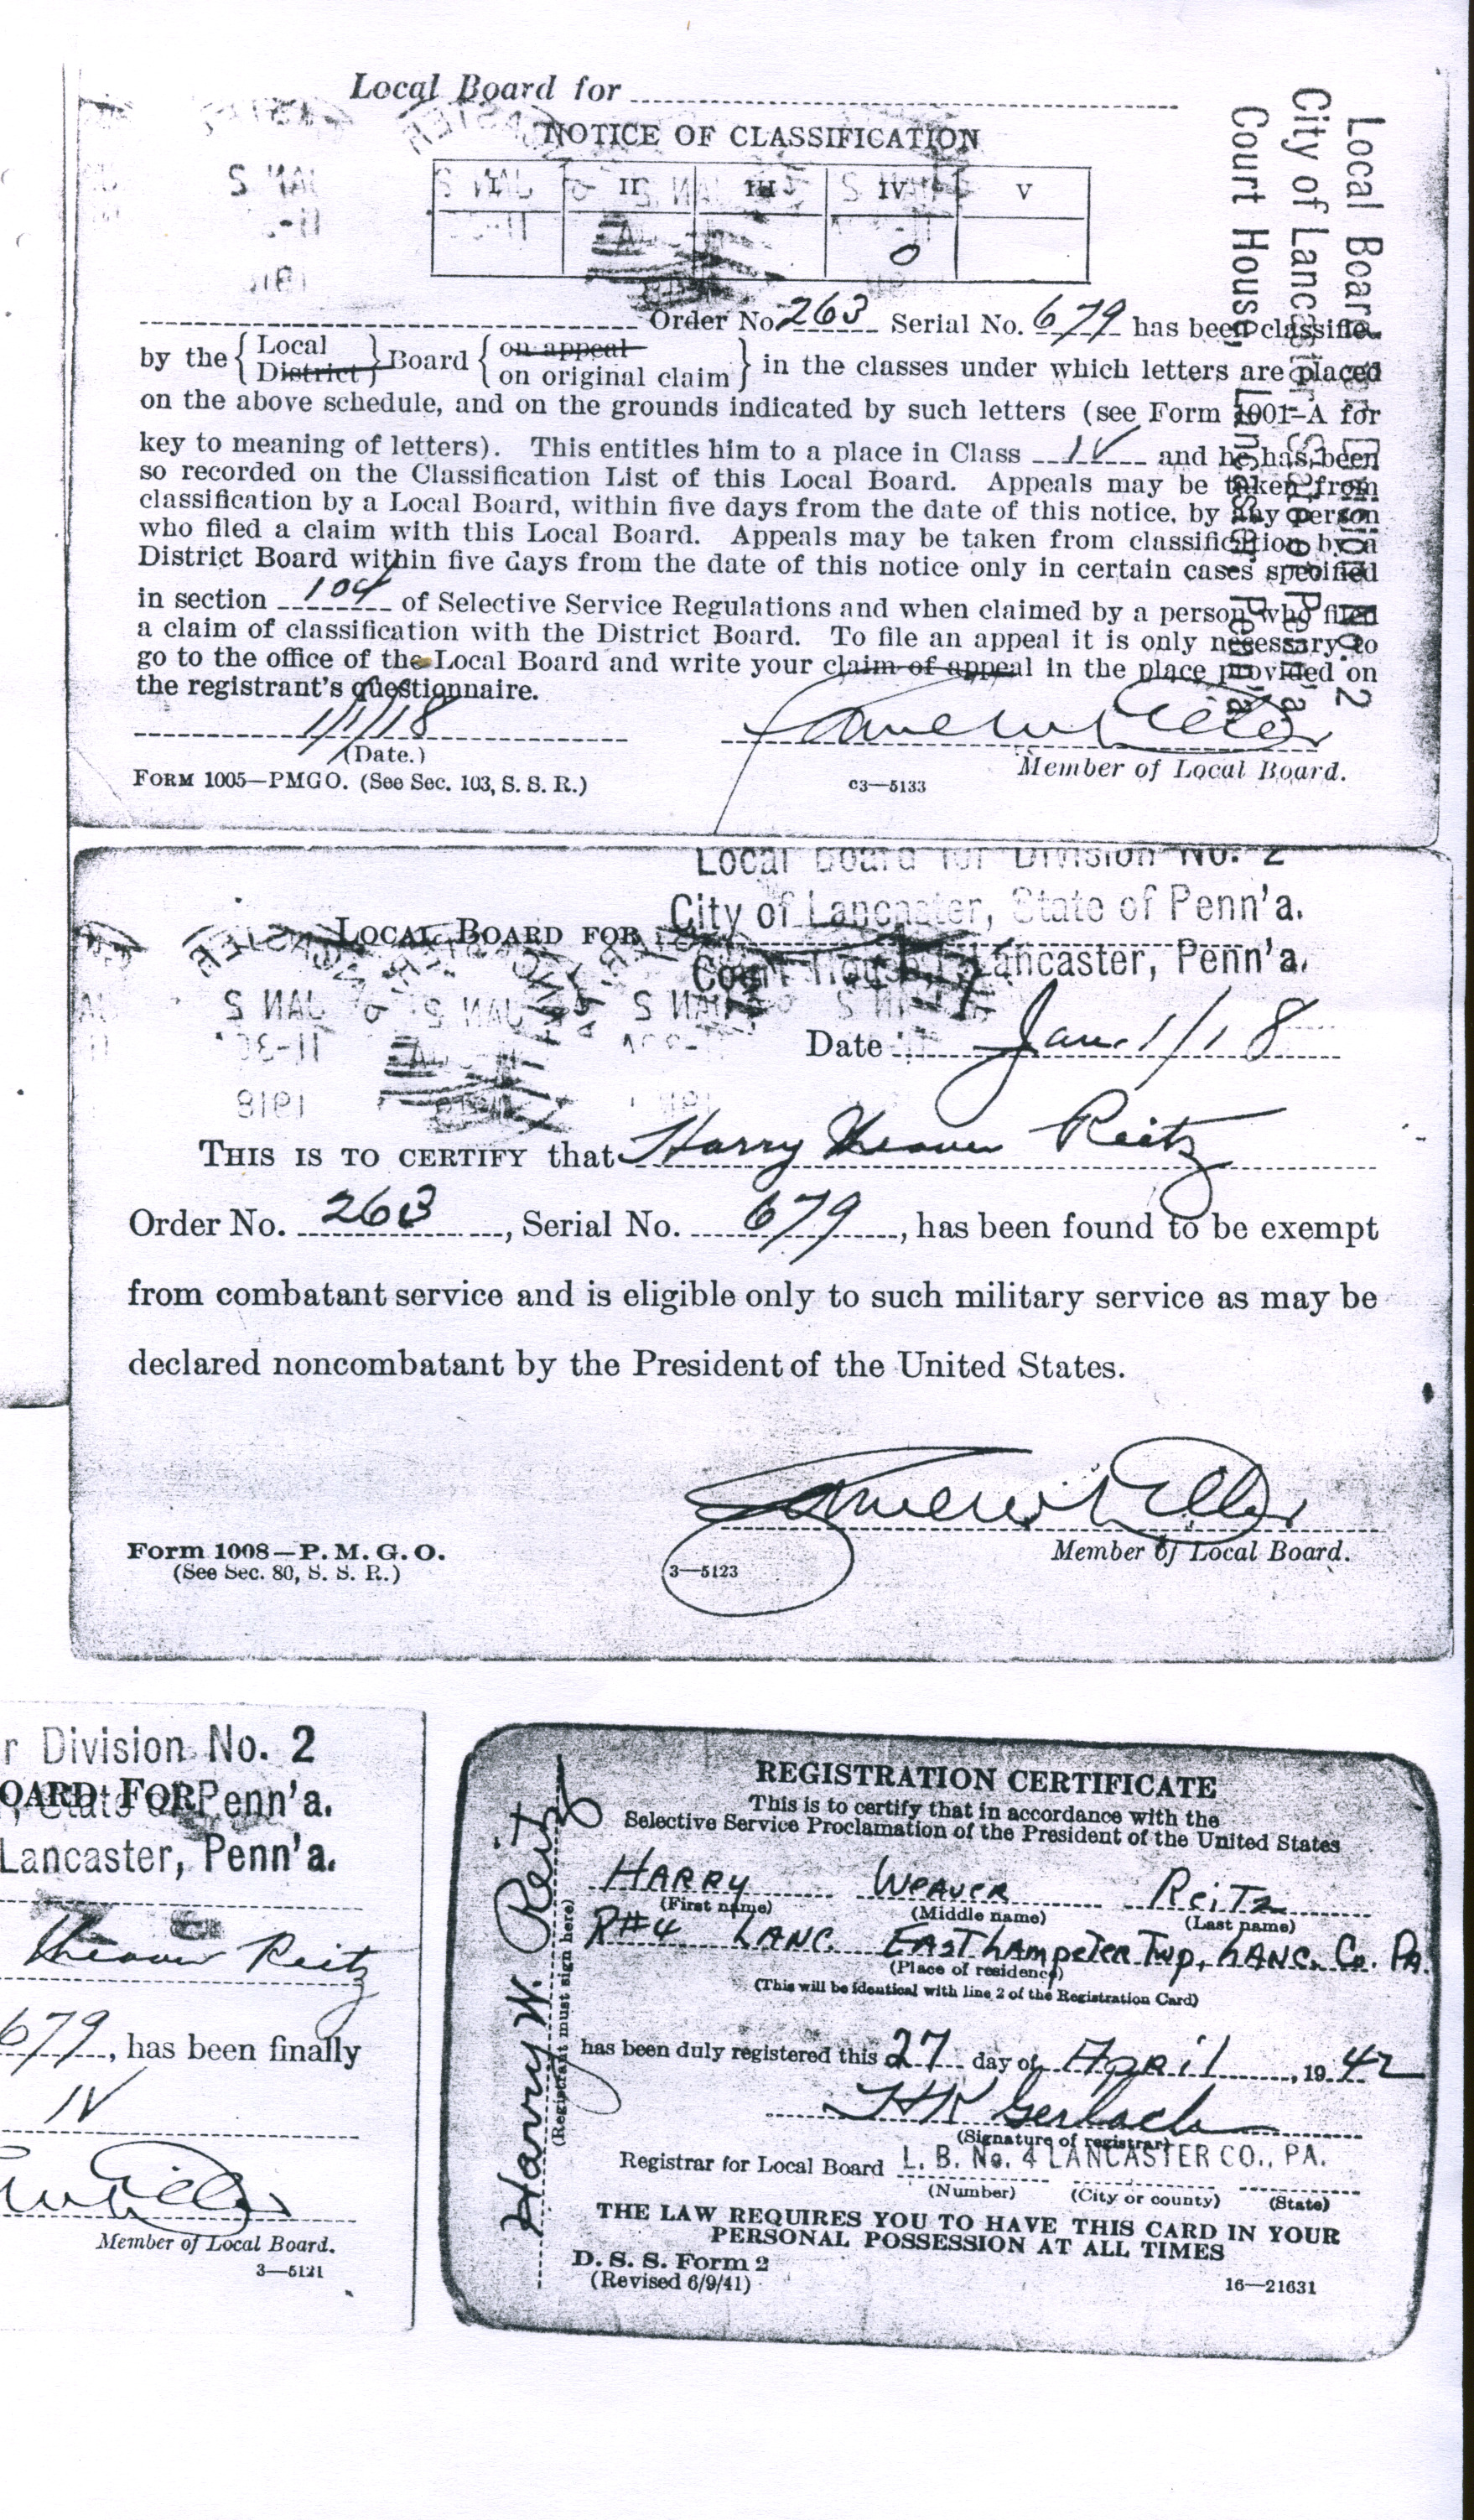 Local Board for
NOTICE OF CLASSIFICATION
I II III IV V
O
Order No. 263 Serial No. 679 has been classified
by the { Local District } Board { on appeal on original claim } in the classes under which letters are placed
on the above schedule, and on the grounds indicated by such letters (see Form 1001–A for
key to meaning of letters). This entitles him to a place in Class IV and he has been
so recorded on the Classification List of this Local Board. Appeals may be taken from
classification by a Local Board, within five days from the date of this notice, by any person
who filed a claim with this Local Board. Appeals may be taken from classification by a
District Board within five days from the date of this notice only in certain cases specified
in section 104 of Selective Service Regulations and when claimed by a person who filed
a claim of classification with the District Board. To file an appeal it is only necessary to
go to the office of the Local Board and write your claim of appeal in the place provided on
the registrant's questionnaire.
1/1/18
(Date.)
Member of Local Board.
FORM 1005—PMGO. (See Sec. 103, S. S. R.)
C3—5133
Local Board for Division No. 2
City of Lancaster, State of Penn'a.
Court House, Lancaster, Penn'a.
Local Board for Division No. 2
City of Lancaster, State of Penn'a.
LOCAL BOARD FOR
Court House, Lancaster, Penn'a.
JAN 2
11-30
1918
Date Jan. 1/18
THIS IS TO CERTIFY that Harry Weaver Reitz
Order No. 263, Serial No. 679, has been found to be exempt
from combatant service and is eligible only to such military service as may be
declared noncombatant by the President of the United States.
Member of Local Board.
Form 1008—P. M. G. O.
(See Sec. 80, S. S. R.)
3—5123
r Division No. 2
OARD FOR
State of Penn'a.
Lancaster, Penn'a.
Weaver Reitz
679, has been finally
IV
Member of Local Board.
3—5121
REGISTRATION CERTIFICATE
This is to certify that in accordance with the
Selective Service Proclamation of the President of the United States
HARRY WEAVER REITZ
(First name) (Middle name) (Last name)
R#4 LANC. EAST LAMPETER TWP, LANC. Co. PA.
(Place of residence)
(This will be identical with line 2 of the Registration Card)
has been duly registered this 27 day of April, 1942
HK Gerlach
(Signature of registrar)
Registrar for Local Board L. B. No. 4 LANCASTER CO., PA.
(Number) (City or county) (State)
THE LAW REQUIRES YOU TO HAVE THIS CARD IN YOUR
PERSONAL POSSESSION AT ALL TIMES
D. S. S. Form 2
(Revised 6/9/41)
16—21631
Harry W. Reitz
(Registrant must sign here)